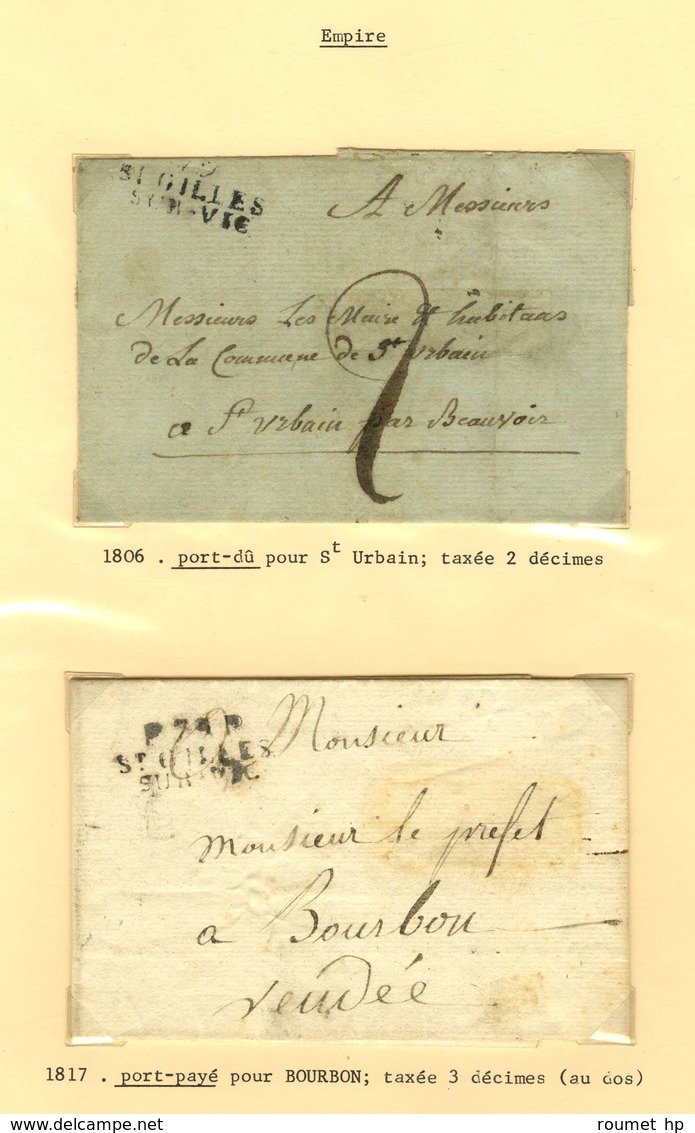 Empire
ST GILLES
SUR-VIE
A Messieurs
Messieurs Les Maire & habitaas
de La Commune de St Urbain
2
a St Urbain par Beauvoir
1806 . port-dû pour St Urbain; taxée 2 décimes
P 79 P
ST GILLES
SUR-VIE
Monsieur
Monsieur le prefet
a Bourbon
vendée
1817 . port-payé pour BOURBON; taxée 3 décimes (au dos)
roumet hp